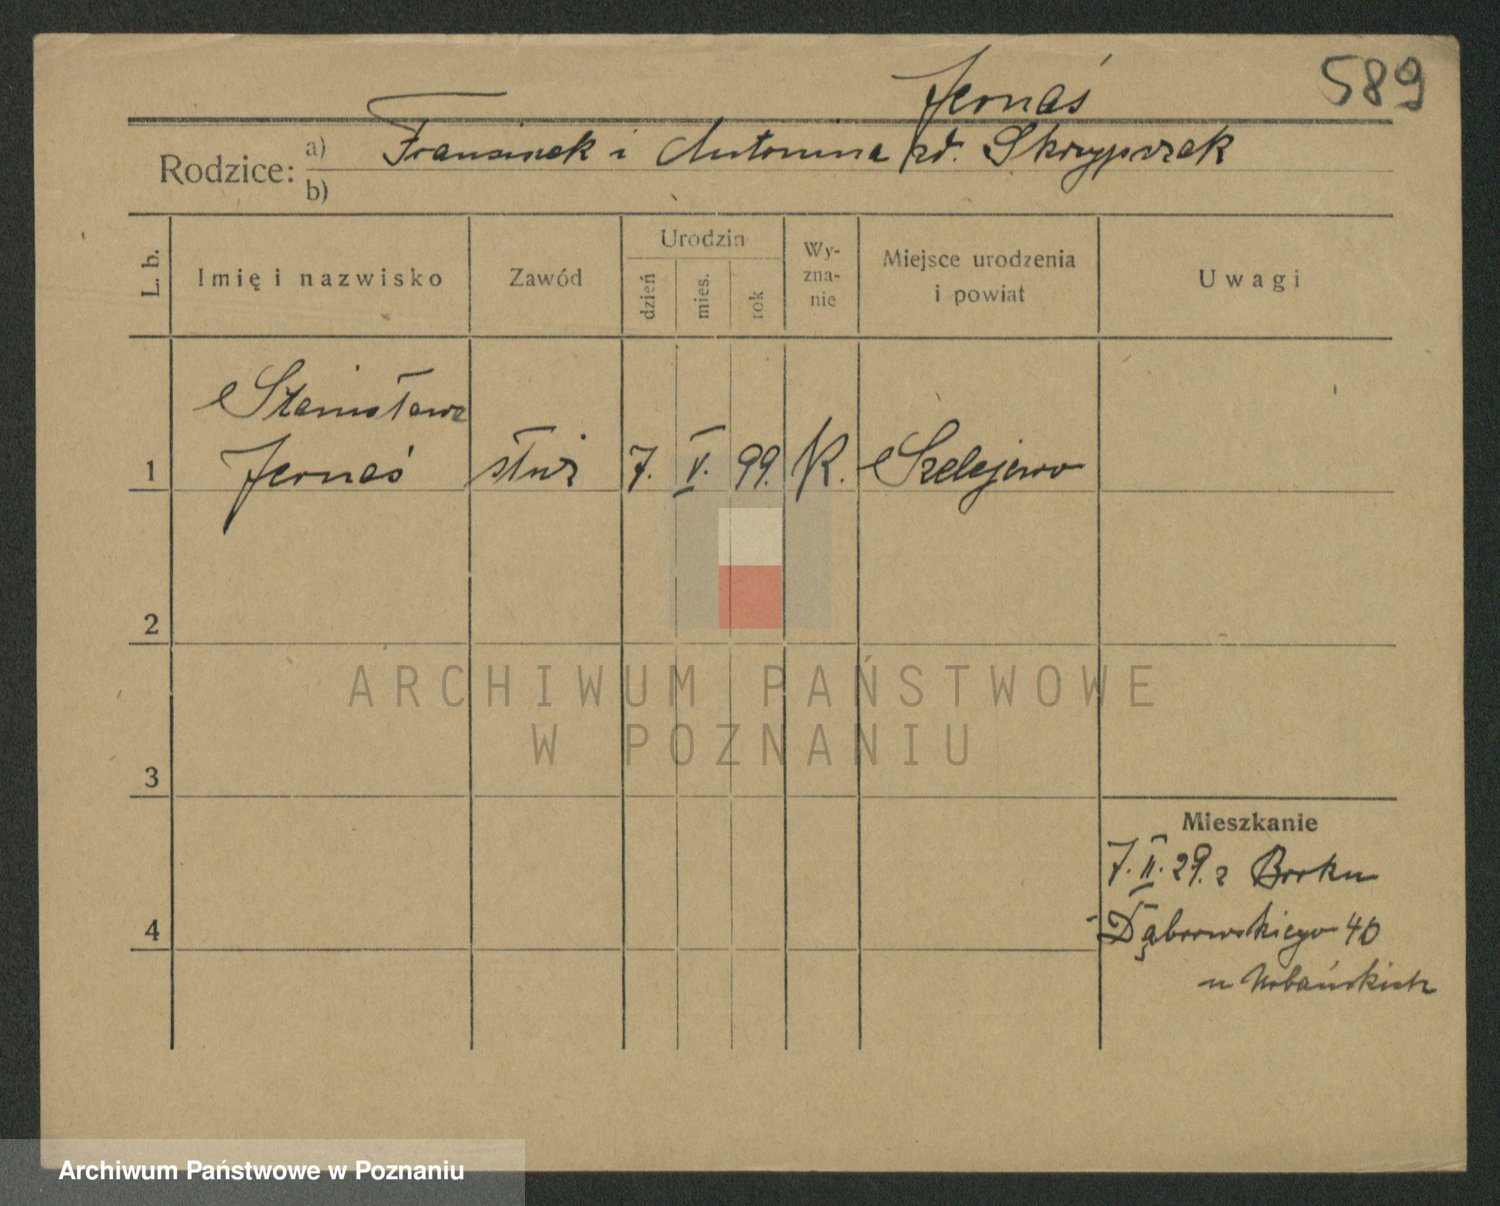 589
Jernaś
Rodzice: a) Franciszek i Antonina zd. Skrzypczak
b)
L. b.
Imię i nazwisko
Zawód
Urodzin
dzień
mies.
rok
Wy-
zna-
nie
Miejsce urodzenia
i powiat
Uwagi
Stanisława
1 Jernaś służ 7. V. 99. K. Szelejewo
2
3
4
Mieszkanie
7.II.29. z Borku
Dąbrowskiego 40
u Urbańskich
ARCHIWUM PAŃSTWOWE
W POZNANIU
Archiwum Państwowe w Poznaniu